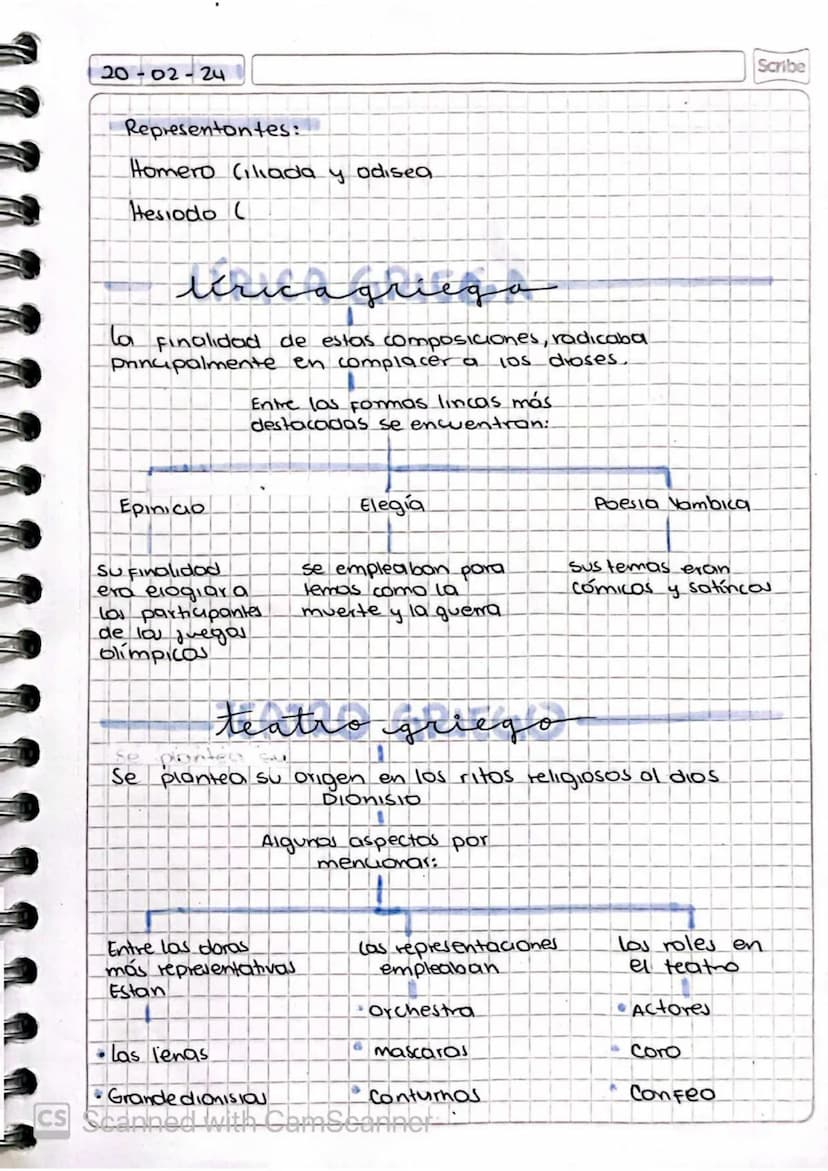 20-02-24
Scribe
Representantes:
Homero (iliada y odisea
Hesiodo (
LÍRICA GRIEGA
lírica griega
la finalidad de estas composiciones, radicaba
principalmente en complacer a los dioses.
Entre las formas liricas más
destacadas se encuentran:
Epinicio
Elegía
Poesia Yambica
su finalidad
era elogiar a
los participantes
de los juegos
olímpicos
se empleaban para
temas como la
muerte y la guerra
sus temas eran
cómicos y satíricos
TEATRO GRIEGO
teatro griego
se plantea su
Se plantea su origen en los ritos religiosos al dios
Dionisio
Algunos aspectos por
mencionar:
Entre las
más representativas
Estan
• Las lenas
• Grande dionisias
Las representaciones
empleaban
• Orchestra
• mascaras
• Conturnos
Los roles en
el teatro
• Actores
• Coro
• Confeo
CS Scanned with CamScanner